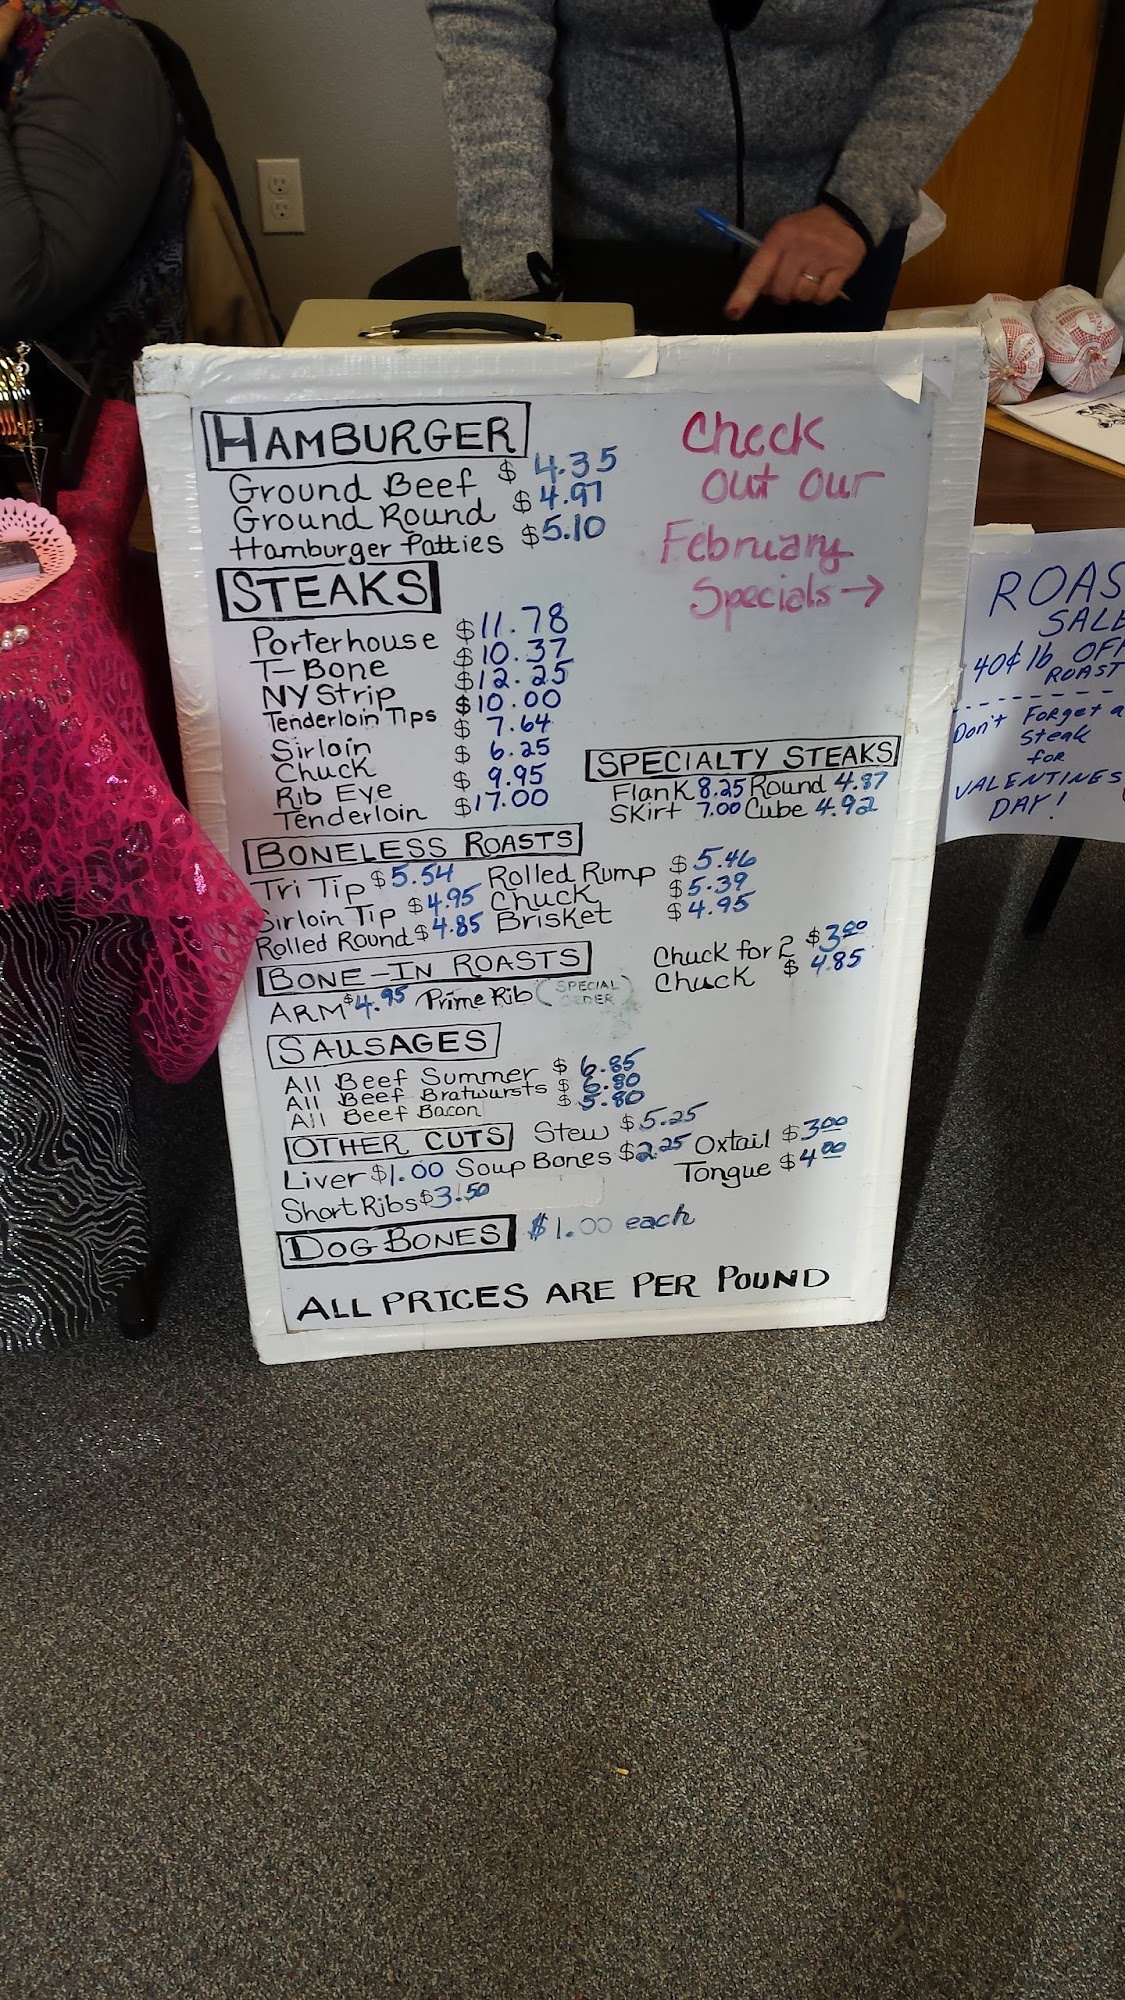 HAMBURGER
Ground Beef $ 4.35
Ground Round $ 4.97
Hamburger Patties $5.10
Check
out our
February
Specials →
STEAKS
Porterhouse $11.78
T-Bone $10.37
NY Strip $12.25
Tenderloin Tips $10.00
Sirloin $ 7.64
Chuck $ 6.25
Rib Eye $ 9.95
Tenderloin $17.00
SPECIALTY STEAKS
Flank 8.25 Round 4.87
Skirt 7.00 Cube 4.92
BONELESS ROASTS
Tri Tip $5.54 Rolled Rump $5.46
Sirloin Tip $4.95 Chuck $5.39
Rolled Round $4.85 Brisket $4.95
BONE-IN ROASTS
Chuck for 2 $3.00
Chuck $ 4.85
ARM $4.95 Prime Rib (SPECIAL ORDER)
SAUSAGES
All Beef Summer $ 6.85
All Beef Bratwursts $ 6.80
All Beef Bacon $ 5.80
OTHER CUTS Stew $5.25
Liver $1.00 Soup Bones $2.25 Oxtail $3.00
Short Ribs $3.50 Tongue $4.00
DOG BONES $1.00 each
ALL PRICES ARE PER POUND
ROAS
SALE
40¢ lb OFF
ROAST
Don't Forget a
Steak
for
VALENTINES
DAY!